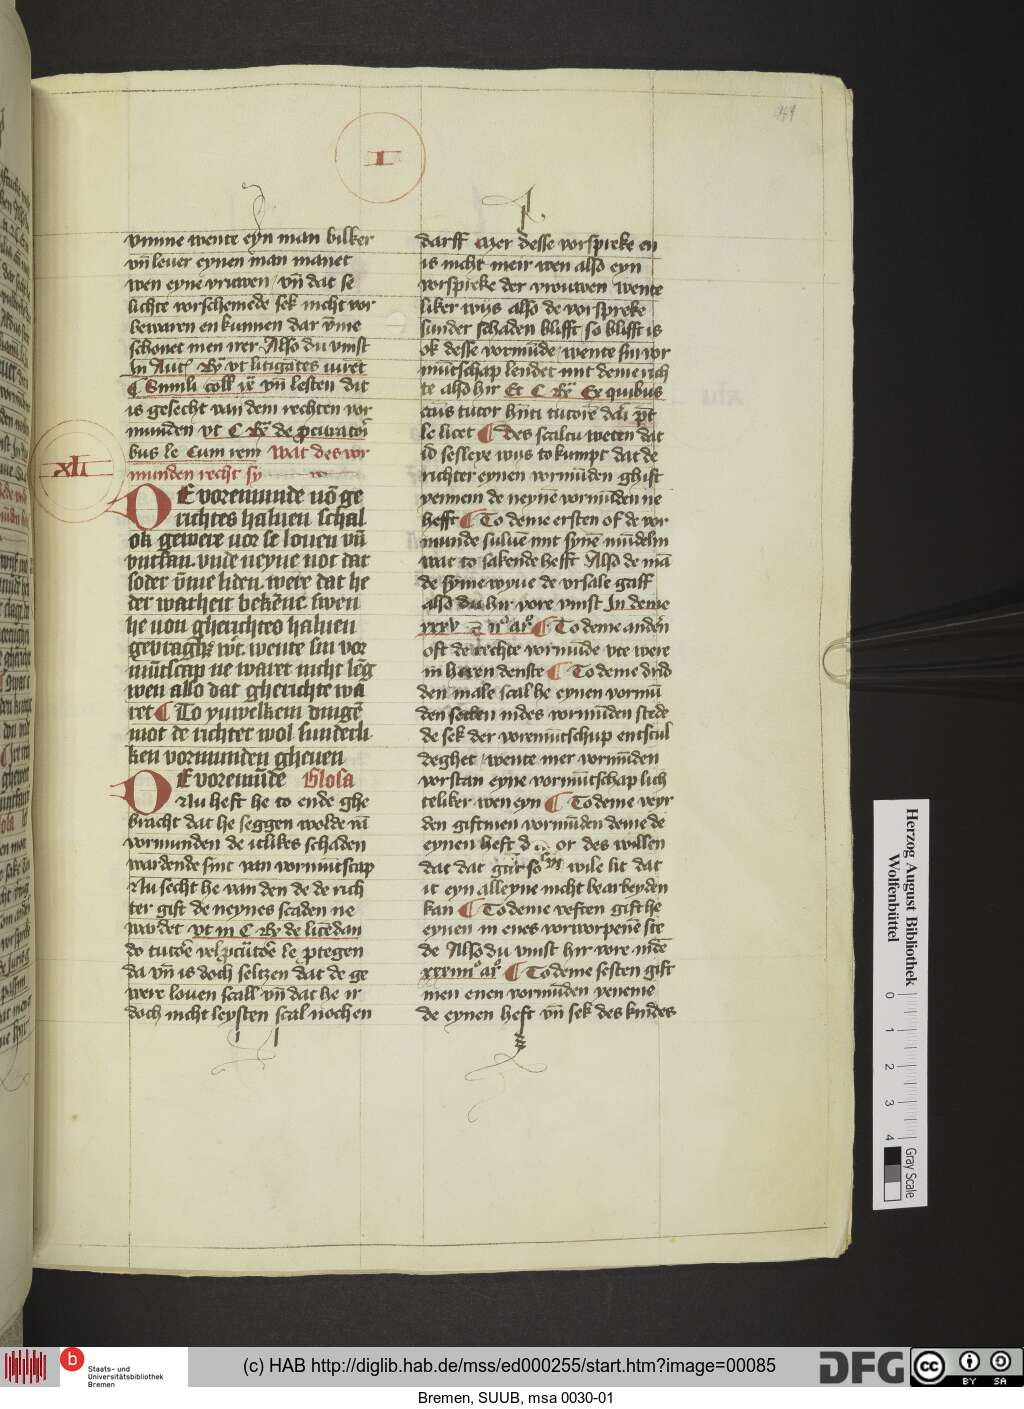 I
vmme wente eyn man bilker
vn̄ lever eynen man manet
wen eyne vruwen / vn̄ dat se
lichte vorschemede sek nicht vor
bewaren en kunnen dar v̄me
schonet men irer. Also du vinst
In Aut' Rx̄ vt litigātes iurēt
¶ Simili coll' ix̄ vn̄ lesten dit
is gesecht van dem rechten vor
munden vt C Rx̄ de ꝓcuratori
bus le Cum rem Wat des vor
munden recht sy
xli
DE voremunde vō ge
richtes haluen schal
ok gewere vor se louen vn̄
vntfan. vnde neyne not dat
soder v̄me liden. were dat he
der warheit bekēne. swen
he von gherichtes haluen
wert. wente sin vor
mūtscap ne waret nicht lēg
wen also dat gherichte wa
ret ¶ To yuwelkem dinge
mot de richter wol sunderli
ken vormunden gheuen
DE voremūde Glosa
Nu heft he to ende ghe
bracht dat he seggen wolde vā
vormunden de itlikes schaden
wardende sint van vormūtscap
Nu secht he van den de de rich
ter gift de neynes scaden ne
wardet vt in C Rx̄ de licēdan
do tutore le ptegen
da vn̄ is doch seltzen dat de ge
were louen scall vn̄ dat he ir
doch nicht leysten scal nochen
darff Mer desse vorspreke en
is nicht meir wen also eyn
vorspreke der vrouwen wente
liker wijs also de vorspreke
sunder schaden blifft so blifft is
ok desse vormūde / wente sin vor
mūtschap lendet mit deme rich
te also hir Et C Rx̄ Ex quibus
caūs tutor tutorē dari pōt
le licet ¶ Des scaltu weten dat
id sesleye wijs to kumpt dat de
richter eynen vormūden ghift
yennem de neynē vormūden ne
hefft ¶ To deme ersten of de vor
munde suluē mit synē mūdelin
wat to sakende hefft Also de mā
de syme wyue de vrsale gaff
also du hir vore vinst In deme
xxxv c ii° ar° ¶ To deme andēn
oft de rechte vormūde vte were
in heren denste ¶ To deme drid
den male scal he eynen vormū
den setten indes vormūden stede
de sek der voremūtschup entscul
deghet / wente mer vormūden
vorstan eyne vormūtschap lich
teliker wen eyn ¶ To deme veyr
den giftmen vormūden deme de
eynen heft or des willen
dat dat gut so wile lit dat
it eyn alleyne nicht bearbeyden
kan ¶ To deme veften gift he
eynen in enes vorworpenē ste
de Also du vinst hir vore in dē
xxxiiii° ar° ¶ To deme sesten gift
men enen vormūden yeneme
de eynen heft vn̄ sek des kindes
Herzog August Bibliothek
Wolfenbüttel
0 1 2 3 4
Gray Scale
Staats- und
Universitätsbibliothek
Bremen
(c) HAB http://diglib.hab.de/mss/ed000255/start.htm?image=00085
DFG
CC BY SA
Bremen, SUUB, msa 0030-01